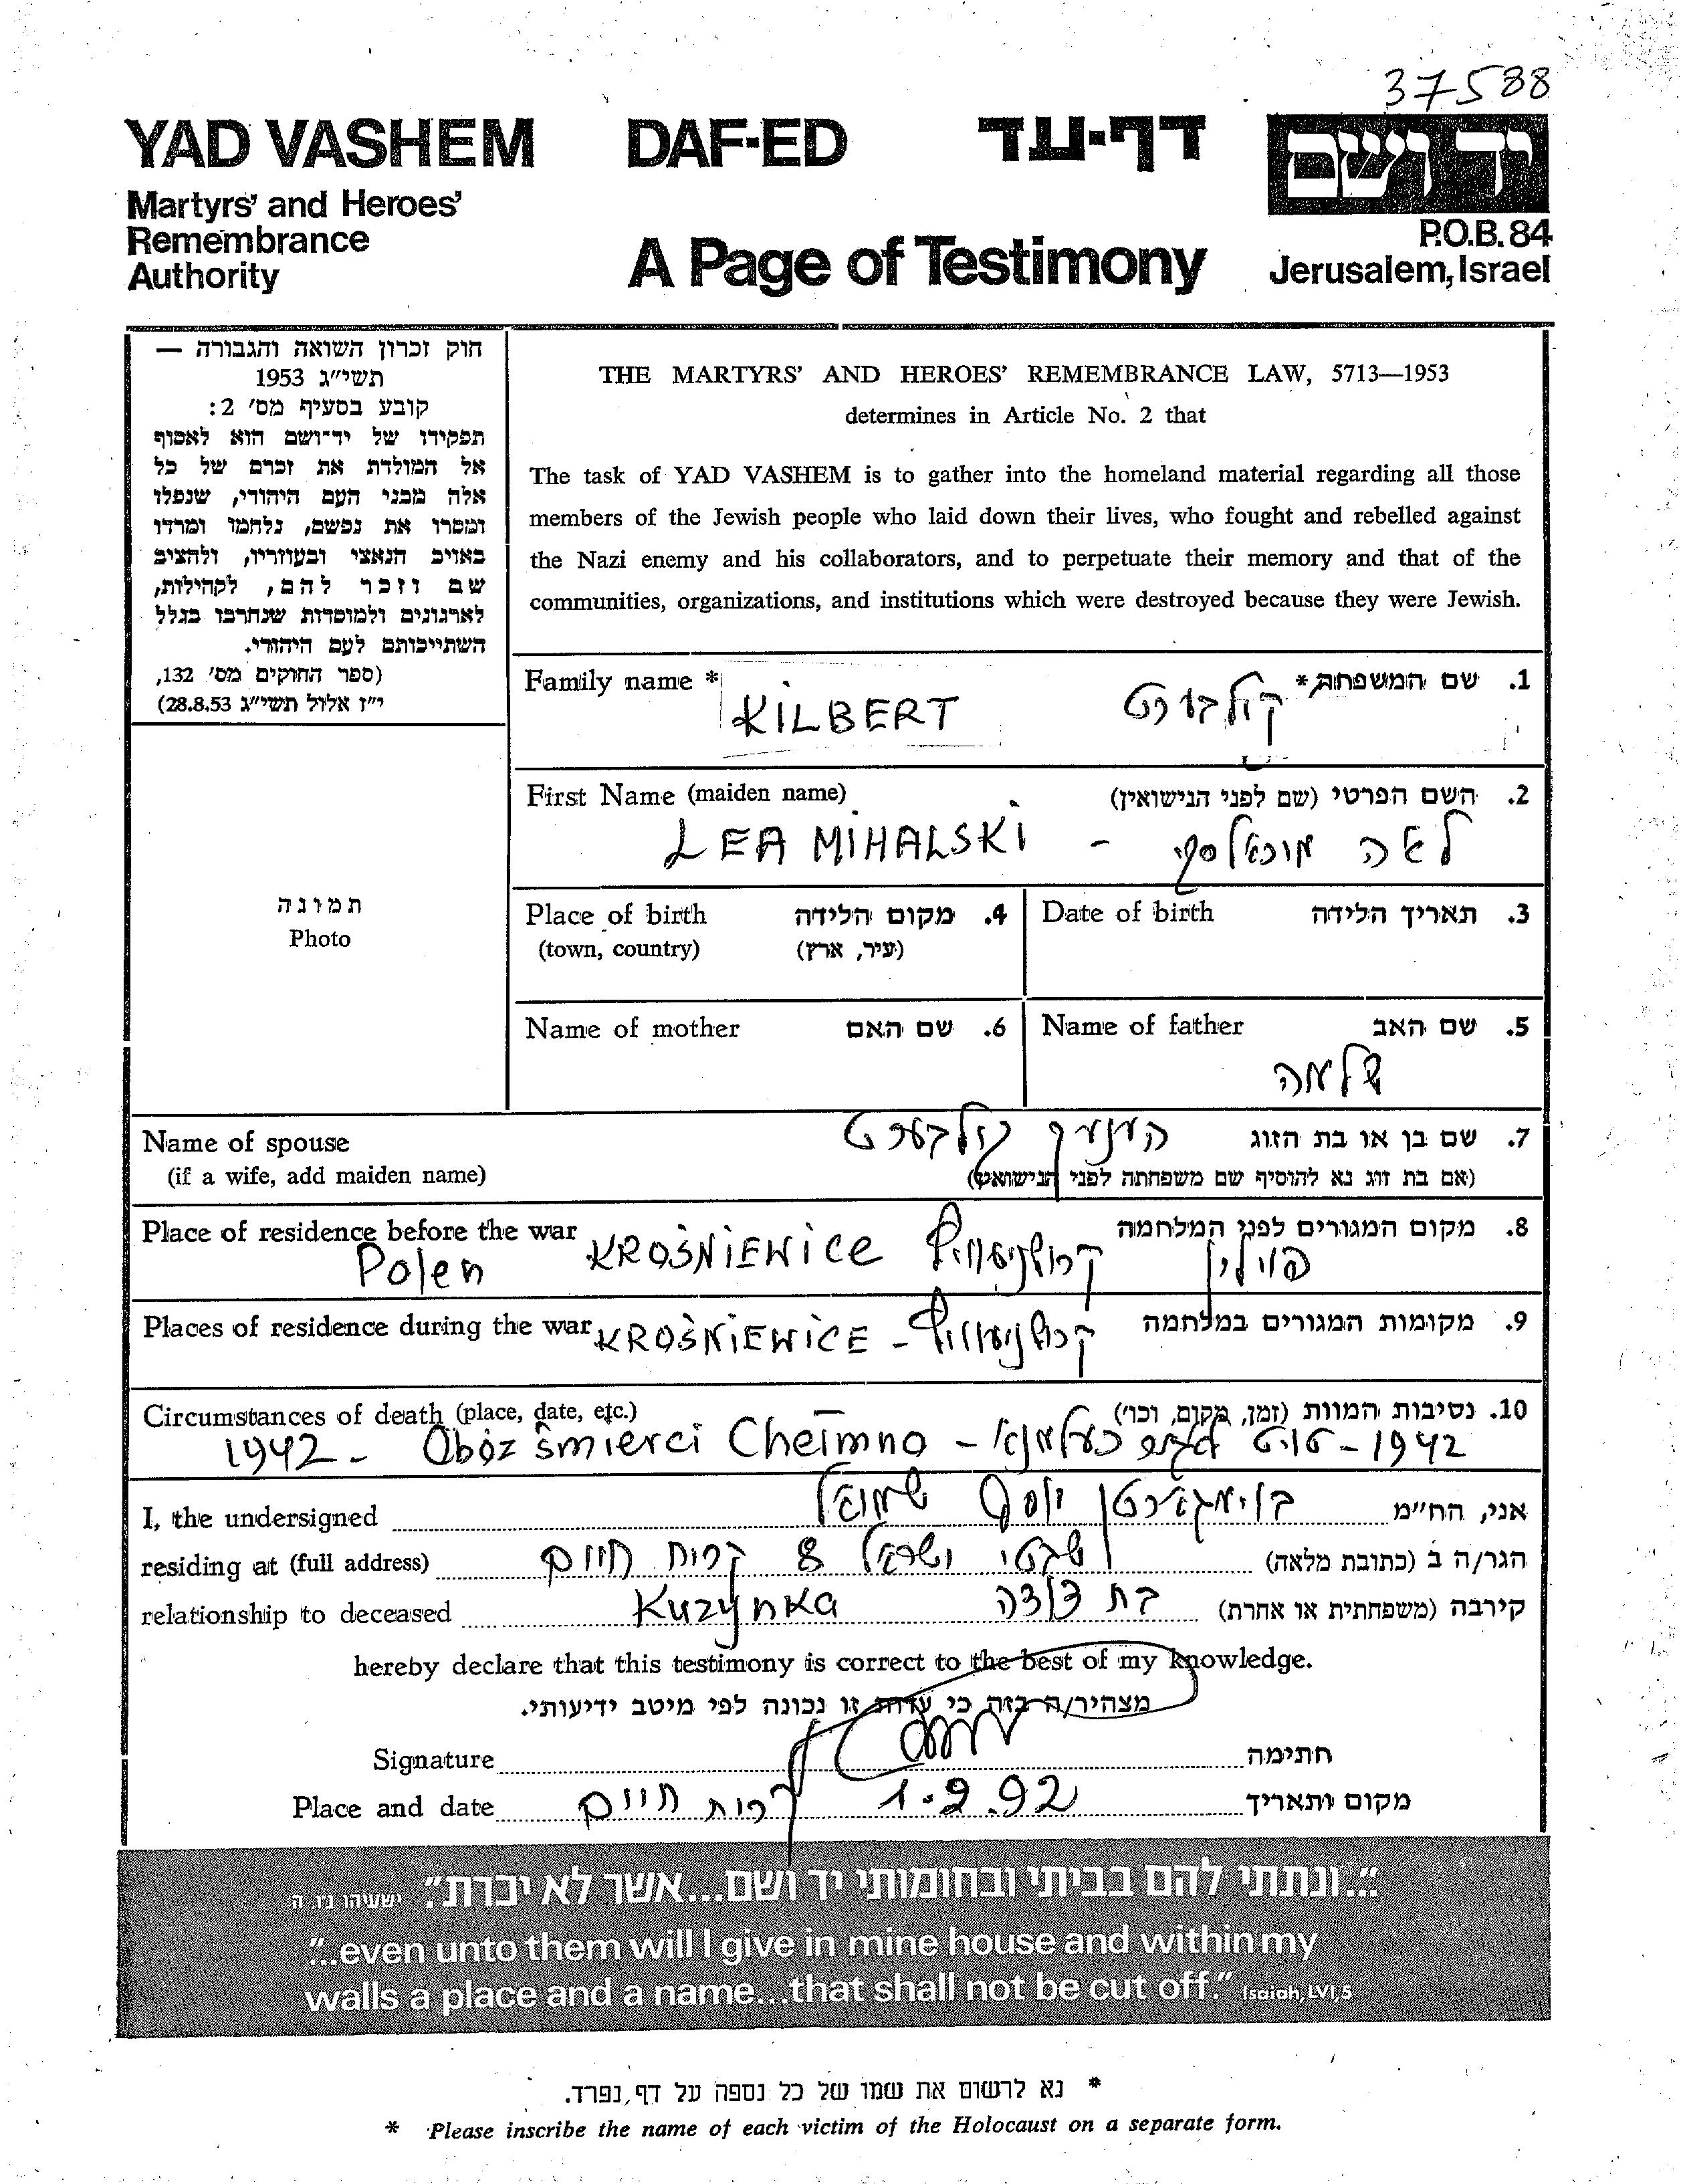 37588
YAD VASHEM DAF-ED דף-עד יד ושם
Martyrs' and Heroes'
Remembrance
Authority
A Page of Testimony
P.O.B. 84
Jerusalem, Israel
חוק זכרון השואה והגבורה —
תשי"ג 1953
קובע בסעיף מס' 2:
תפקידו של יד-ושם הוא לאסוף
אל המולדת את זכרם של כל
אלה מבני העם היהודי, שנפלו
ומסרו את נפשם, נלחמו ומרדו
באויב הנאצי ובעוזריו, ולהציב
שם וזכר להם, לקהילות,
לארגונים ולמוסדות שנחרבו בגלל
השתייכותם לעם היהודי.
(ספר החוקים מס' 132,
י"ז אלול תשי"ג 28.8.53)
THE MARTYRS' AND HEROES' REMEMBRANCE LAW, 5713—1953
determines in Article No. 2 that
The task of YAD VASHEM is to gather into the homeland material regarding all those
members of the Jewish people who laid down their lives, who fought and rebelled against
the Nazi enemy and his collaborators, and to perpetuate their memory and that of the
communities, organizations, and institutions which were destroyed because they were Jewish.
Family name * 1. שם המשפחה*
KILBERT קילבערט
First Name (maiden name) 2. השם הפרטי (שם לפני הנישואין)
LEA MIHALSKI - לאה מיכאלסקי
תמונה
Photo
Place of birth 4. מקום הלידה
(town, country) (עיר, ארץ)
Date of birth 3. תאריך הלידה
Name of mother 6. שם האם
Name of father 5. שם האב
שלמה
Name of spouse 7. שם בן או בת הזוג
הענעך קילבערט
(if a wife, add maiden name) (אם בת זוג נא להוסיף שם משפחתה לפני הנישואין)
Place of residence before the war 8. מקום המגורים לפני המלחמה
Polen KROŚNIEWICE קרושניעוויץ פוילין
Places of residence during the war 9. מקומות המגורים במלחמה
KROŚNIEWICE - קרושניעוויץ
Circumstances of death (place, date, etc.) 10. נסיבות המוות (זמן, מקום, וכו')
1942 - Obóz śmierci Chełmno - 1942 - טויט לאגער כעלמנאו
I, the undersigned בוימגארטן יוסף שמואל אני, הח"מ
residing at (full address) שבטי ישראל 8 קרית חיים הגר/ה ב (כתובת מלאה)
relationship to deceased Kuzynka בת דודה קירבה (משפחתית או אחרת)
hereby declare that this testimony is correct to the best of my knowledge.
מצהיר/ה בזה כי עדות זו נכונה לפי מיטב ידיעותי.
Signature חתימה
Place and date קרית חיים 1.9.92 מקום ותאריך
"...ונתתי להם בביתי ובחומותי יד ושם...אשר לא יכרת". ישעיהו נו, ה
"...even unto them will I give in mine house and within my
walls a place and a name...that shall not be cut off." Isaiah, LVI, 5
* נא לרשום את שמו של כל נספה על דף נפרד.
* Please inscribe the name of each victim of the Holocaust on a separate form.